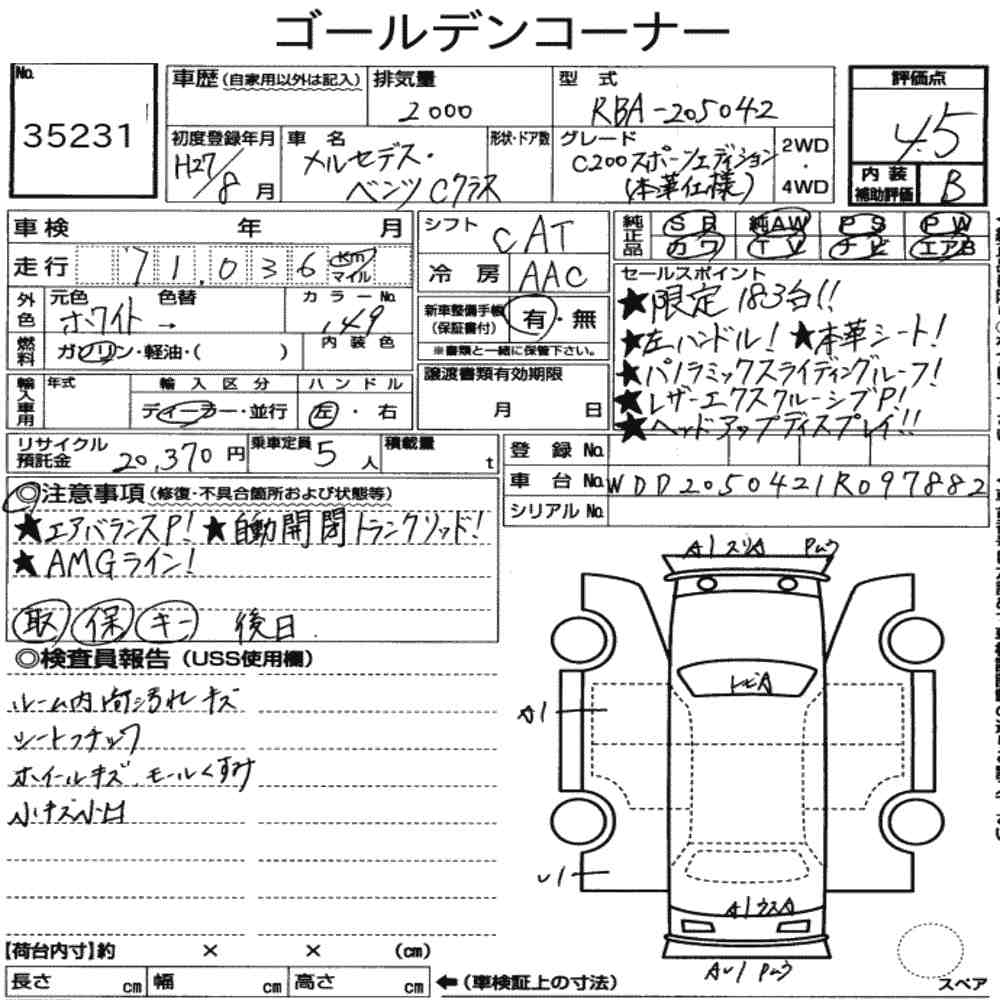 ゴールデンコーナー
No.
35231
車歴(自家用以外は記入)
排気量
2000
型 式
RBA-205042
評価点
4.5
初度登録年月
H27/8月
車 名
メルセデス・
ベンツCクラス
形状・ドア数
グレード
C200スポーツエディション
(本革仕様)
2WD
・
4WD
内装
補助評価
B
車検 年 月
シフト
CAT
純正品
SR 純AW PS PW
カワ TV ナビ エアB
走行 71.036 Km
マイル
冷房 AAC
セールスポイント
★限定183台!!
★左ハンドル! ★本革シート!
★パノラミックスライディングルーフ!
★レザーエクスクルーシブP!
★ヘッドアップディスプレイ!!
外色
元色 色替
ホワイト→
カラーNo.
149
新車整備手帳
(保証書付)
有・無
※書類と一緒に保管下さい。
燃料
ガソリン・軽油・( )
内装色
輸入車用
年式
輸入区分
ディーラー・並行
ハンドル
左・右
譲渡書類有効期限
月 日
リサイクル
預託金
20,370円
乗車定員
5人
積載量
t
登録No.
車台No. WDD2050421R097882
シリアルNo.
◎注意事項(修復・不具合箇所および状態等)
★エアバランスP! ★自動開閉トランクリッド!
★AMGライン!
取 保 キー 後日
◎検査員報告(USS使用欄)
ルーム内荷汚れキズ
シートフチックワ
ホイールキズ、モールくすみ
小キズ小凹
A1スリA
トビA
A1
A1ウスA
【荷台内寸】約 × × (cm)
長さ cm 幅 cm 高さ cm ←(車検証上の寸法)
スペア